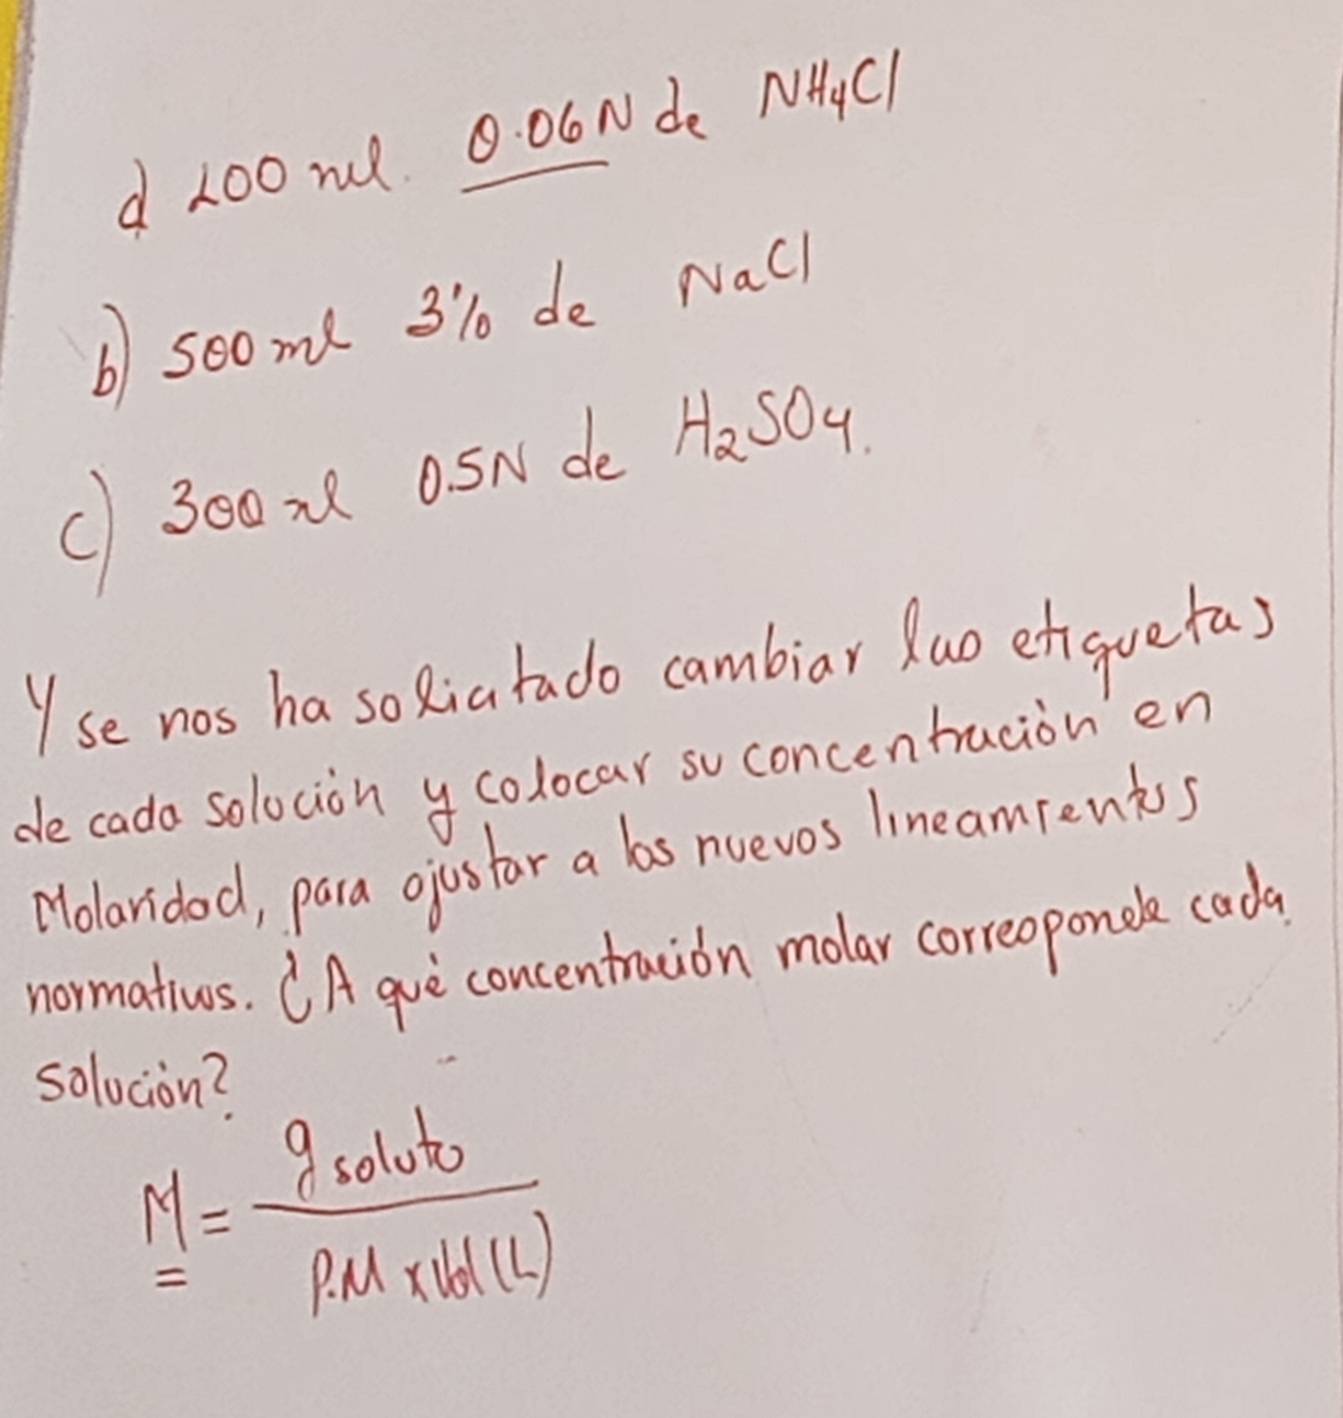 a) 200 ml. 0.06N de NH4Cl
b) 500 ml 3% de NaCl
c) 300 ml 0.5N de H2SO4.
Y se nos ha solicitado cambiar las etiquetas
de cada solución y colocar su concentración en
Molaridad, para ajustar a los nuevos lineamientos
normativos. ¿A qué concentración molar corresponde cada
solución?
M = g soluto
P.M x Vol (L)